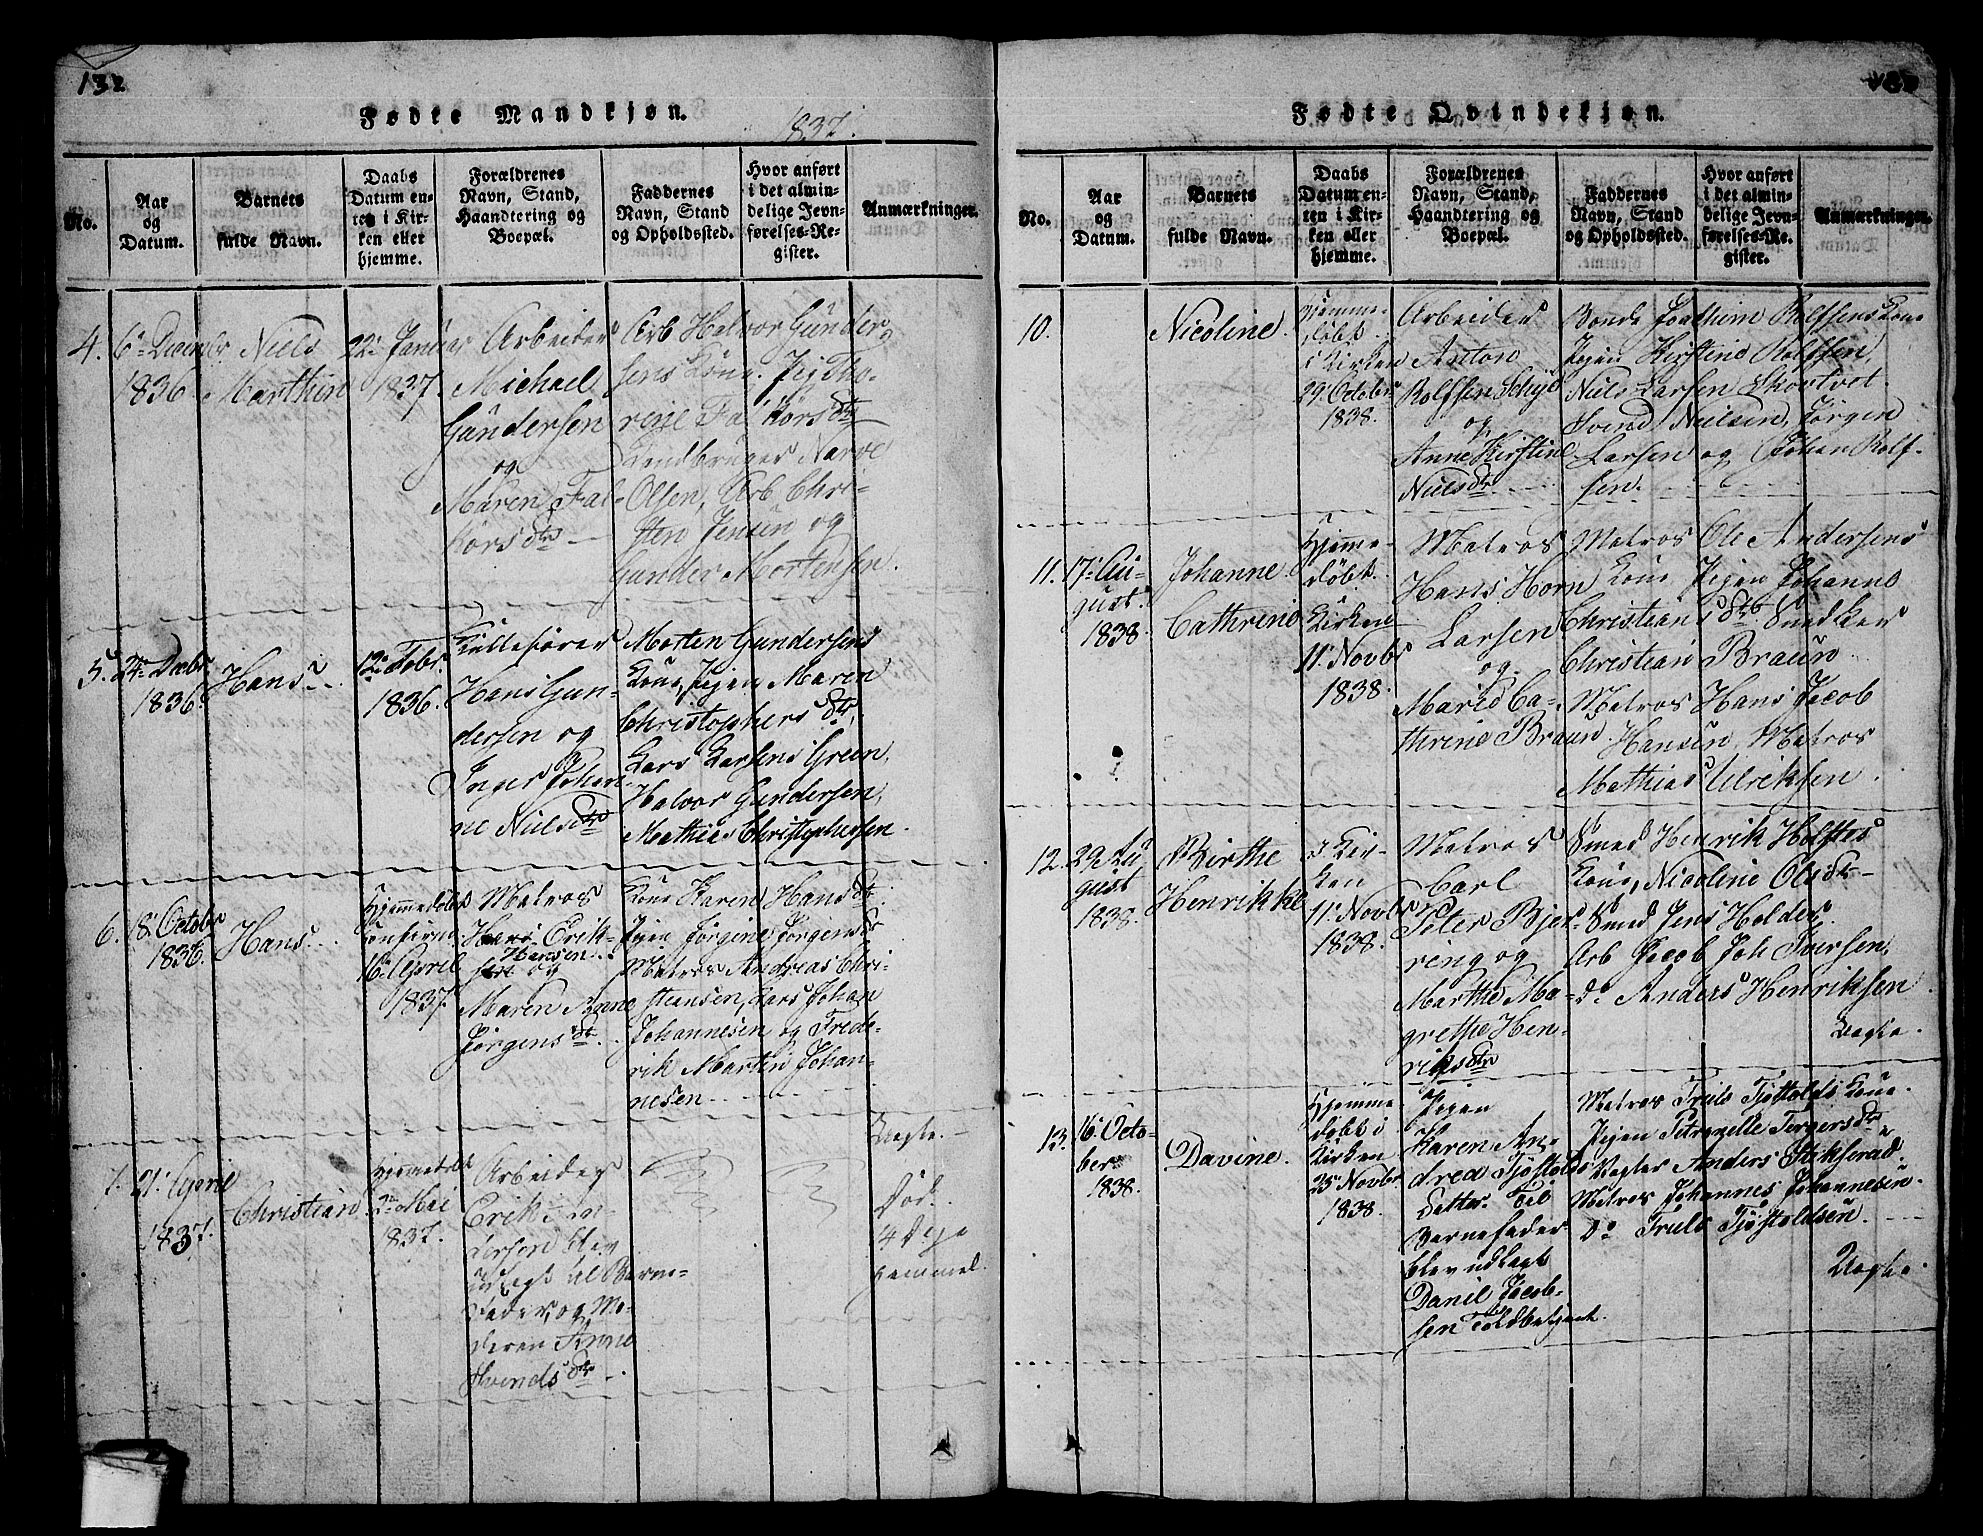 132
Fødte Mandkjøn.
1837.
No.
Aar
og
Datum.
Barnets
fulde Navn.
Daabs
Datum en-
ten i Kir-
ken eller
hjemme.
Forældrenes
Navn, Stand,
Haandtering og
Boepæl.
Faddernes
Navn, Stand
og Opholdssted.
Hvor anført
i det almin-
delige Jevn-
førelses-Re-
gister.
Anmærkninger.
4.
6te Decembr
1836.
Niels
Marthin
22. Januar
1837.
Arbeider
Michael
Gundersen
og
Maren Fal-
kors Dtr
Arb Halvor Gunder
sens Kone. Pij Tho-
rine Falkors Dtr
Landbruger Narve
Olsen, Arb Chri-
sten Jensen og
Gunder Mortensen.
5.
24. Decbr
1836.
Hans.
12. Febr.
1836.
Hans Gun-
dersen og
Inger Johan
ne Niels Dtr
Morten Gundersens
Kone, Pigen Maren
Christophers Dtr,
Lars Larsens Green,
Halvor Gundersen,
Mathias Christophersen.
6.
8. Octobr
1836.
Hans.
Hjemmedøbt
16. April
1837.
Matros
Hans Erik-
Hansen
sen og
Maren Anne
Jørgens Dtr.
Kone Karen Hans Dtr.
Pijen Jørgine Jørgens Dtr
Matros Andreas Chri-
stiansen, Lars Johan
Johannesen og Frede-
rik Martin Johan-
nesen
Uægte.
7.
21. April
1837.
Christian
Hjemmedøbt
2. Mai
1837.
Arbeider
Erik An-
dersen blev
udlagt til Barne-
fader, og Mo-
deren Anne
Svends Dtr.
Død.
4 Dage
gammel.
Fødte Qvindekjøn.
No.
Aar
og
Datum.
Barnets
fulde Navn.
Daabs
Datum en-
ten i Kir-
ken eller
hjemme.
Forældrenes
Navn, Stand,
Haandtering og
Boepæl.
Faddernes
Navn, Stand
og Opholdssted.
Hvor anført
i det almin-
delige Jevn-
førelses-Re-
gister.
Anmærkninger.
10.
Nicoline.
Hjemme-
døbt.
i Kirken
29. October
1838.
Arbeider
Anton
Rolfsen
og
Anne Kirstine
Niels Dtr.
Bonde Joathim Rolfsens Kone
Pijen Kirstine Rolfsen,
Niels Larsen
Svend Nielsen, Jörgen
Larsen og Johan Rolf-
sen.
11.
17. Au-
gust.
1838.
Johanne
Cathrine
Hjemme-
døbt.
i
Kirken
11. Novbr
1838.
Matros
Hans Horn
Larsen
og
Marie Ca-
thrine Braun
Matros Ole Andersens
Kone Pijen Johanne
Christians Dtr. Snedker
Christian Braun.
Matros Hans Jacob
Hansen, Matros
Mathias Ulriksen.
12.
29. Au
gust
1838.
Birthe
Henrikke
I Kir-
ken
11. Novbr
1838.
Matros
Carl
Peter Bjer-
ring og
Marthe Ma-
grethe Hen-
riks Dtr
Smed Henrik Holstes
Kone, Nicoline Ols Dtr
Smed Jens Holder.
Arb Jacob Joh Iversen,
do Anders Henriksen.
Uægte.
13.
16. Octo-
ber
1838.
Davine.
Hjemme
døbt i
Kirken
25. Novbr
1838.
Pigen
Karen An-
drea Tjøstolds
Datter. Til
Barnefader
blev udlagt
Daniel Jacob-
sen Toldbetjent.
Matros Truls Tjøstolds Kone.
Pijen Petronelle Torgers Dtr
Matros Johannes Johannesen.
Do Truls Tjøstoldsen.
Uægte.